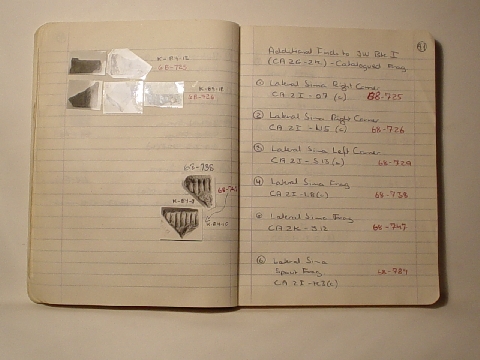 K-89-12
68-725
K-89-18
68-726
6-8-738
68-74
K-89-8
K-89-15
91
Additional Index to JW Bk I
(CA 2G-2K) - Catalogued Frag
① Lateral Sima Right Corner
CA 2I - D7 (c) 68-725
② Lateral Sima Right Corner
CA 2I - N5 (c) 68-726
③ Lateral Sima Left Corner
CA 2I - S13 (c) 68-729
④ Lateral Sima Frag
CA 2I - L8 (c) 68-738
Lateral Sima Frag
CA 2K - S12 68-747
⑥ Lateral Sima
Spout Frag 68-784
CA 2I - K1 (c)